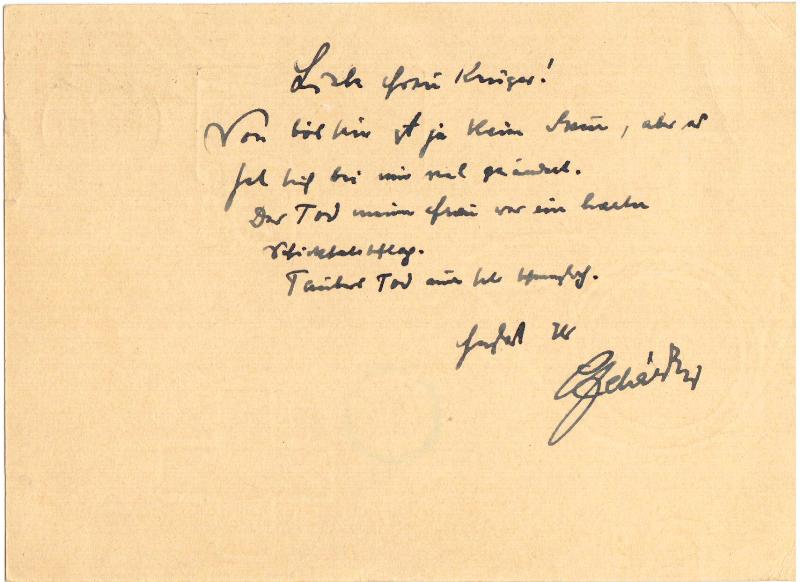 Liebe Frau Krüger!
Von bös hin ist ja kein, aber es
hat sich bei mir viel geändert.
Der Tod meiner Frau war ein harter
Schicksalsschlag.
Taubers Tod auch sehr
Herzlichst Ihr